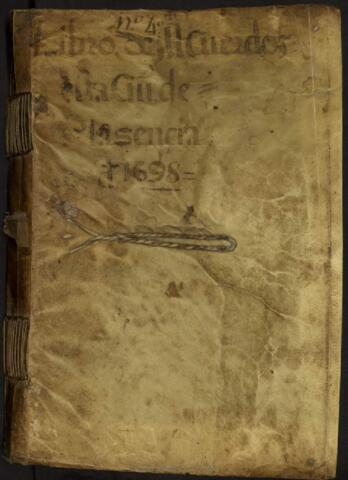 nº 4º
Libro de ACuerdos
de la Ciu. de
Plasencia
† 1698 =